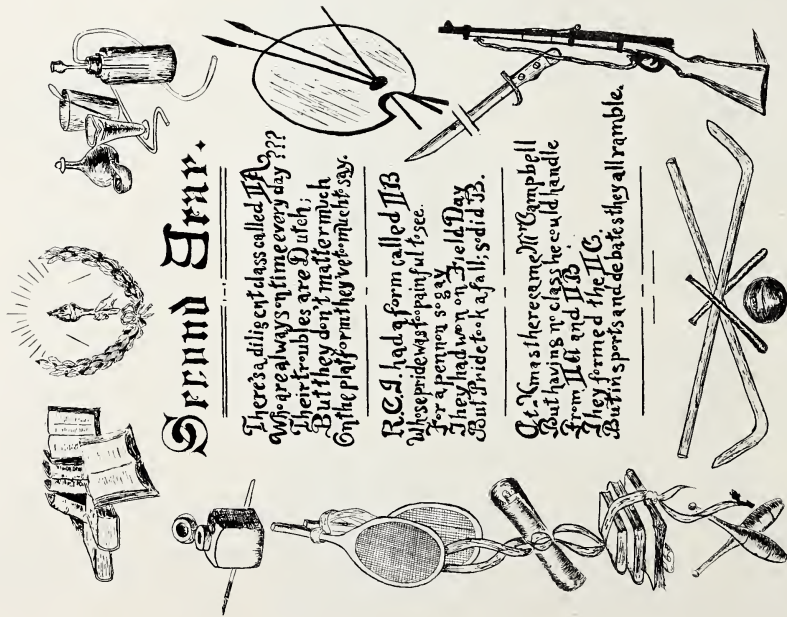 Second Year.
There's a diligent class called IIA,
Who are always on time every day ???
Their troubles are Dutch;
But they don't matter much
On the platform they've to much to say.
R.C.I. had a form called IIB
Whose pride was too painful to see.
For a pennon so gay
They had won on Field Day
But Pride took a fall; so did B.
At Xmas there came Mr Campbell
But having no class he could handle
From IIA and IIB
They formed the IIC.
But in sports and debates they all ramble.